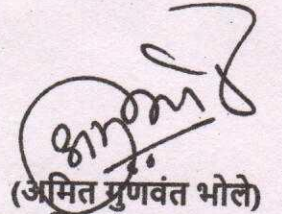 (अमित गुणवंत भोले)